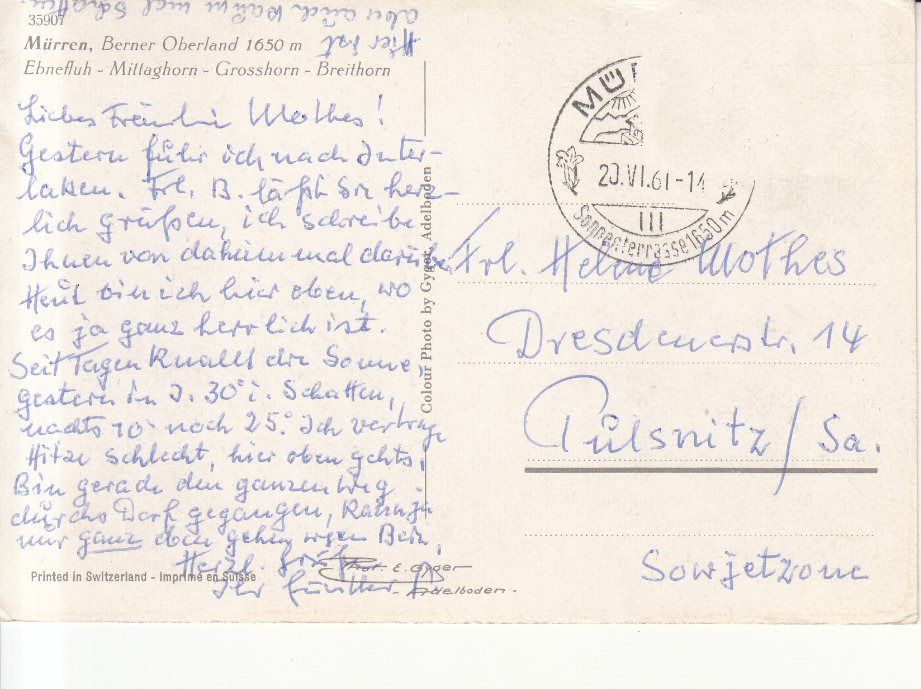 35907
Mürren, Berner Oberland 1650 m
Ebnefluh - Mittaghorn - Grosshorn - Breithorn
Liebes Fräulein Mothes!
Gestern fuhr ich nach Inter-
laken. Frl. B. läßt Sie herz-
lich grüßen, ich schreibe
Ihnen von daheim mal darüber.
Heut bin ich hier oben, wo
es ja ganz herrlich ist.
Seit Tagen knallt die Sonne,
gestern in I. 30° i. Schatten,
nachts 10 noch 25°. Ich vertrage
Hitze schlecht, hier oben gehts!
Bin gerade den ganzen Weg
durchs Dorf gegangen, kann ja
nur ganz eben gehen wegen Bein,
Hier ist
aber auch kaum mal Schatten.
Herzl. Grüße
Ihr Günther
Printed in Switzerland - Imprimé en Suisse
Phot. E. Gyger
- Adelboden.
Colour Photo by Gyger, Adelboden
MÜR
20.VI.61-14
III
Sonnenterrasse 1650 m
Frl. Helene Mothes
Dresdenerstr. 14
Pulsnitz/Sa.
Sowjetzone